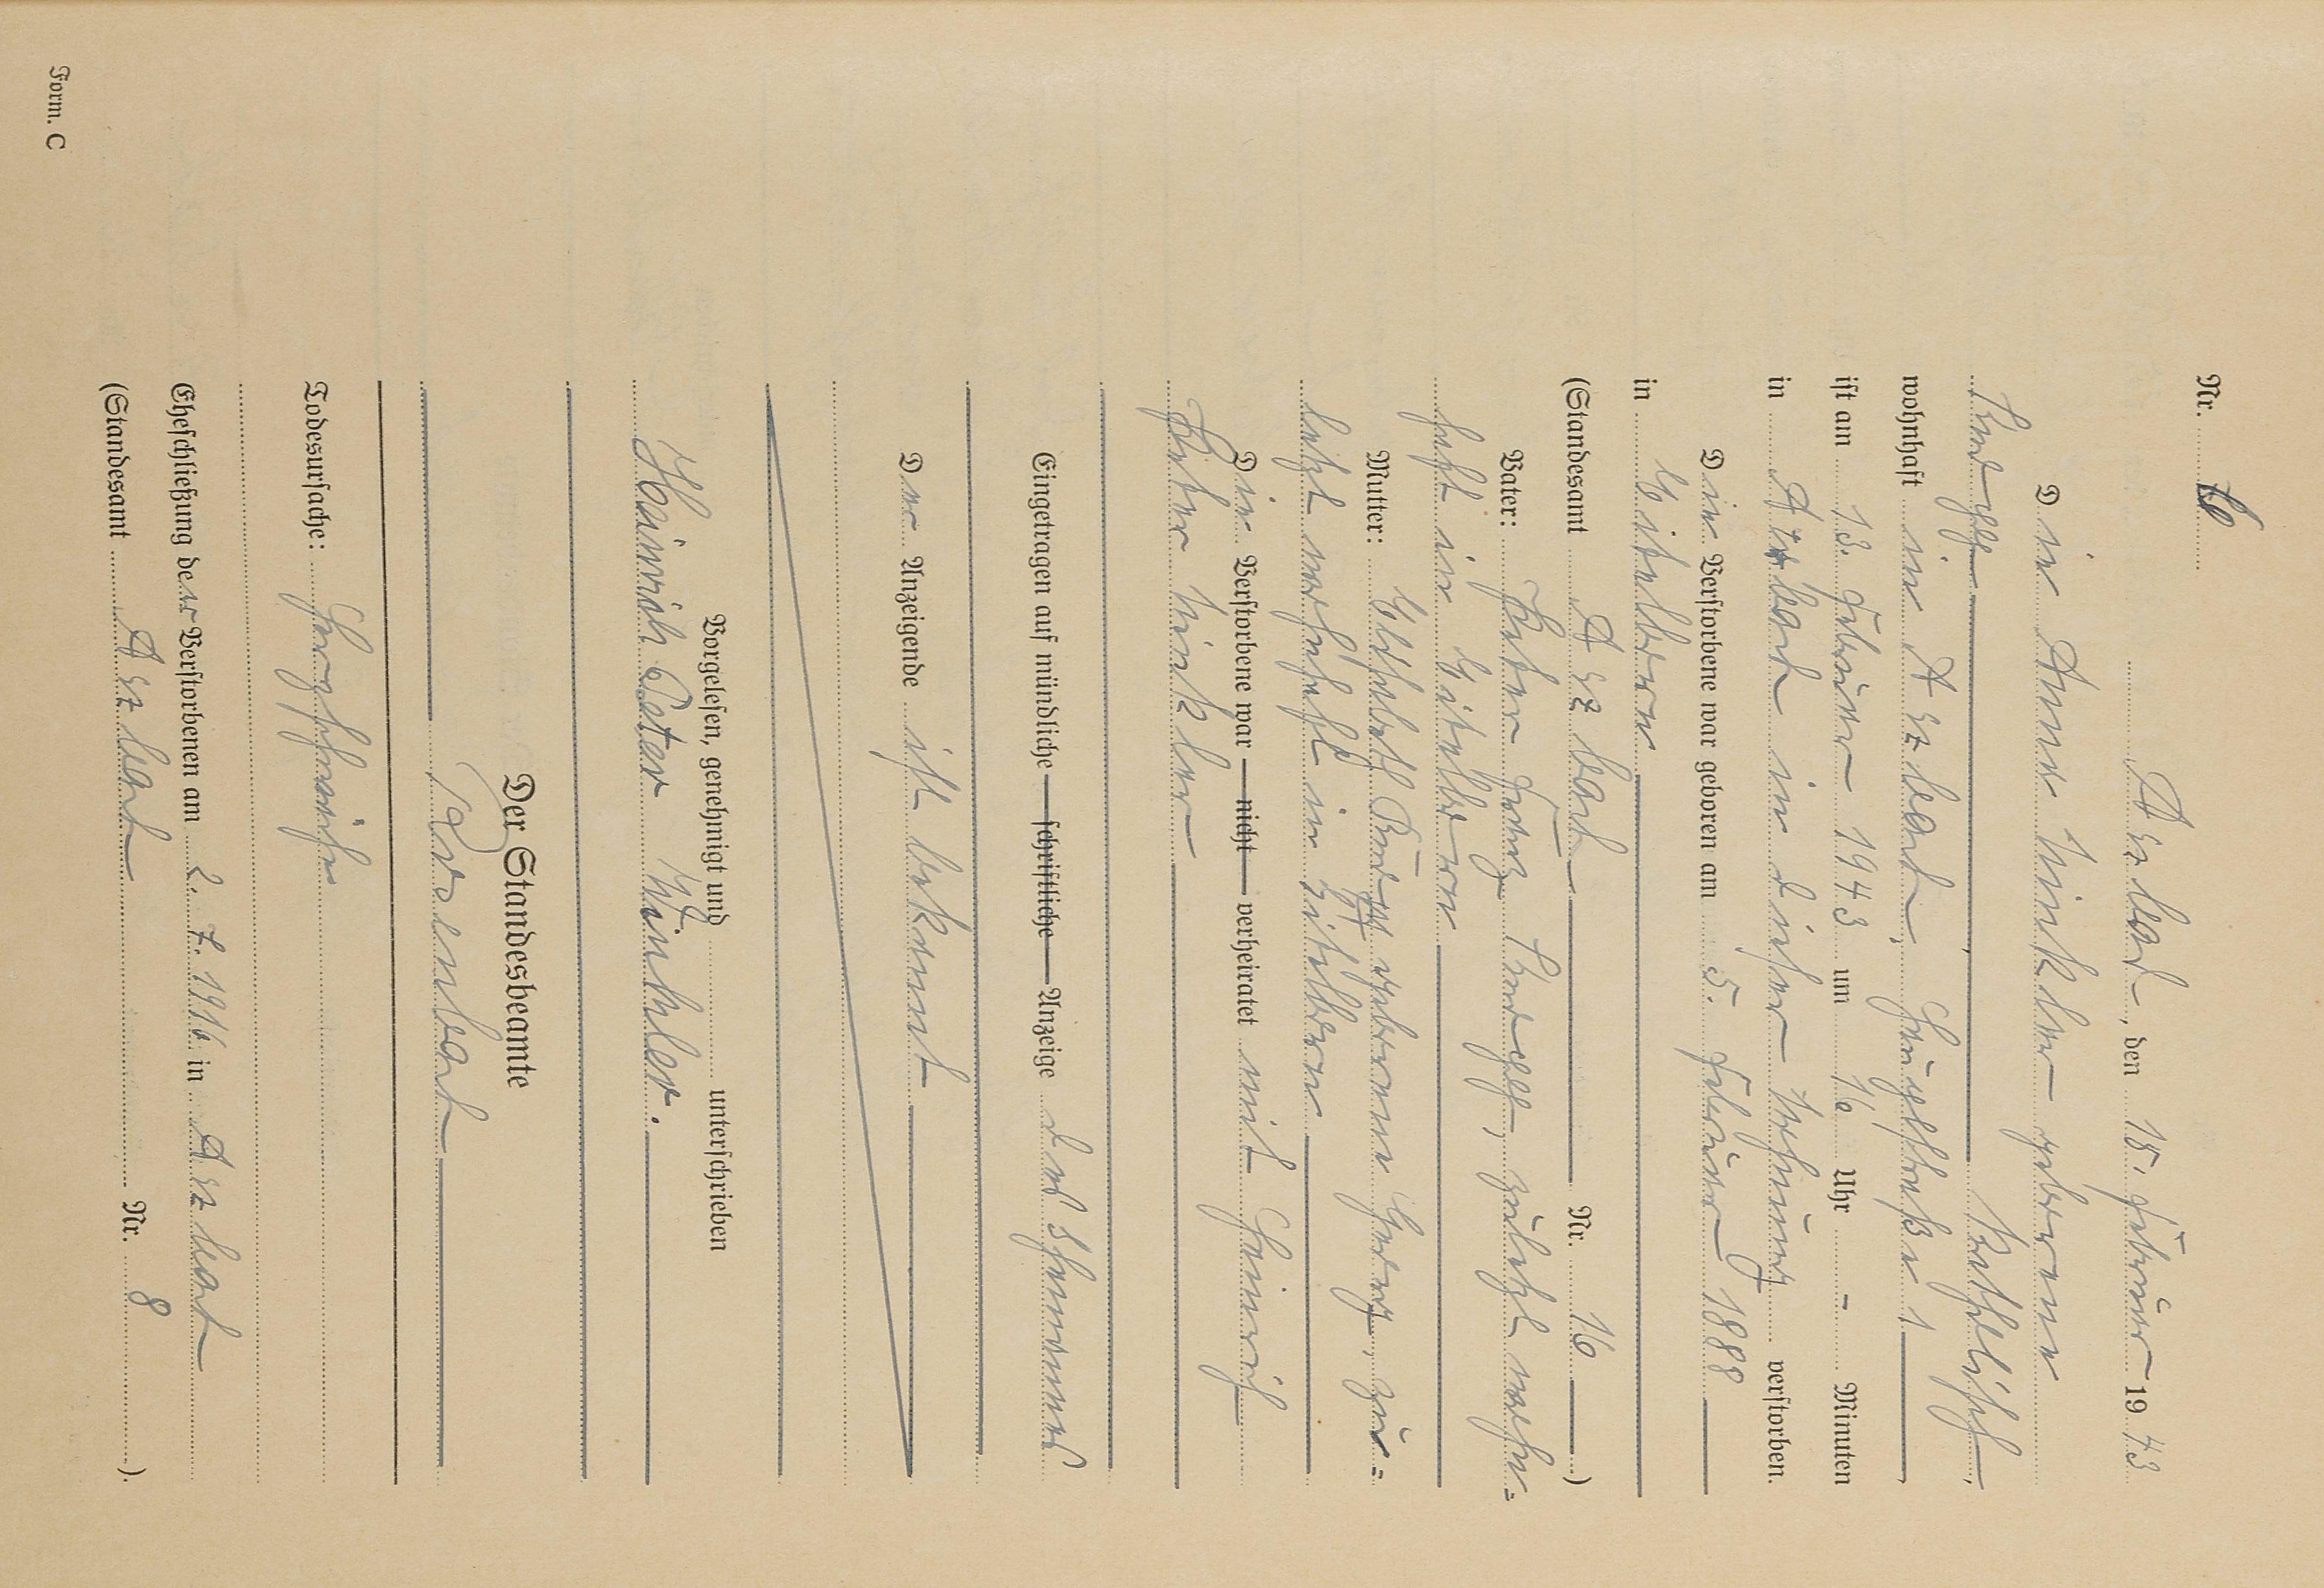 Nr. 6
Arzbach, den 15. Februar 1943
Die Anna Winkler geborene
katholisch
wohnhaft in Arzbach, Hauptstraße 1
ist am 13. Februar 1943 um Uhr - Minuten
in Arzbach in dieser Wohnung verstorben.
Die Verstorbene war geboren am 5. Februar 1888
in Eitelborn
(Standesamt Arzbach Nr. 16)
Vater: Peter zuletzt wohn=
haft in Eitelborn
Mutter: Elisabeth geborene zu=
letzt wohnhaft in Eitelborn
Die Verstorbene war nicht verheiratet mit Heinrich
Peter Winkler
Eingetragen auf mündliche schriftliche Anzeige des Ehemannes
Der Anzeigende ist bekannt
Vorgelesen, genehmigt und unterschrieben
Heinrich Peter Winkler.
Der Standesbeamte
Todesursache: Herzschwäche
Eheschließung der Verstorbenen am 2. 7. 1916 in Arzbach
(Standesamt Arzbach Nr. 8).
Form. C